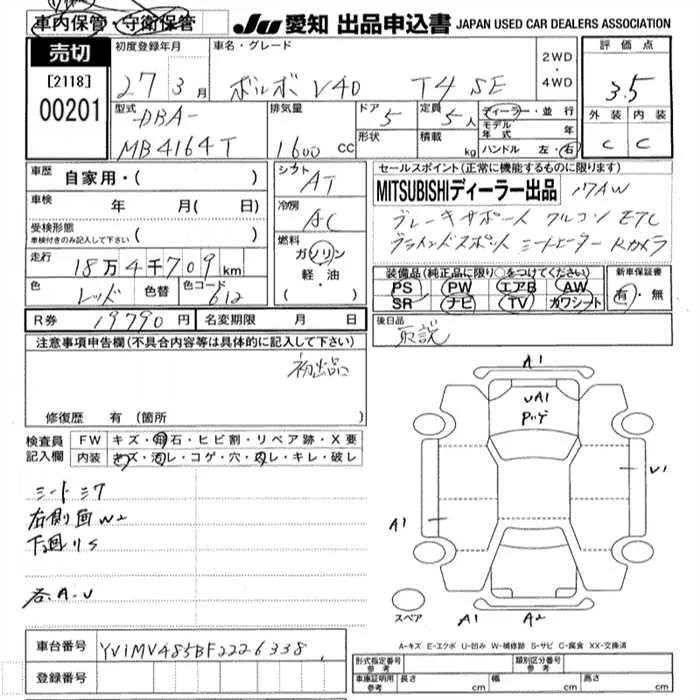 車内保管・守衛保管
JU 愛知 出品申込書 JAPAN USED CAR DEALERS ASSOCIATION
売切
[2118]
00201
初度登録年月
27 3月
車名・グレード
ボルボ V40 T4 SE
2WD
・
4WD
評価点
3.5
外装 内装
C C
型式
DBA-
MB4164T
排気量
1600 CC
ドア
5
形状
定員
5人
積載
kg
ディーラー・並行
モデル年式 年
ハンドル 左・右
車歴
自家用・( )
車検
年 月( 日)
受検形態
車検付きのみ記入して下さい ( )
走行
18万4千709km
色
レッド
色替
色コード
612
シフト
AT
冷房
AC
燃料
ガソリン
軽・油
( )
セールスポイント(正常に機能するものに限ります)
MITSUBISHIディーラー出品 17AW
ブレーキサポート クルコン ETC
ブラインドスポット シートヒーター Rカメラ
装備品(純正品に限り○をつけてください)
PS PW エアB AW
SR ナビ TV カワシート
新車保証書
有・無
R券 19790円 名変期限 月 日
後日品
取説
注意事項申告欄(不具合内容等は具体的に記入して下さい)
初出品
修復歴 有(箇所 )
検査員
記入欄
FW キズ・飛石・ヒビ割・リペア跡・X要
内装 キズ・汚レ・コゲ・穴・スレ・キレ・破レ
シートシワ
右側面W2
下回りS
各A.U
A1
UA1
U1
A1
スペア
A1 A2
A-キズ E-エクボ U-凹み W-補修跡 S-サビ C-腐食 XX-交換済
車台番号
YV1MV485BF2226338
登録番号
形式指定番号
参考
類別区分番号
参考
車庫証明用
参考
長さ cm 幅 cm 高さ cm